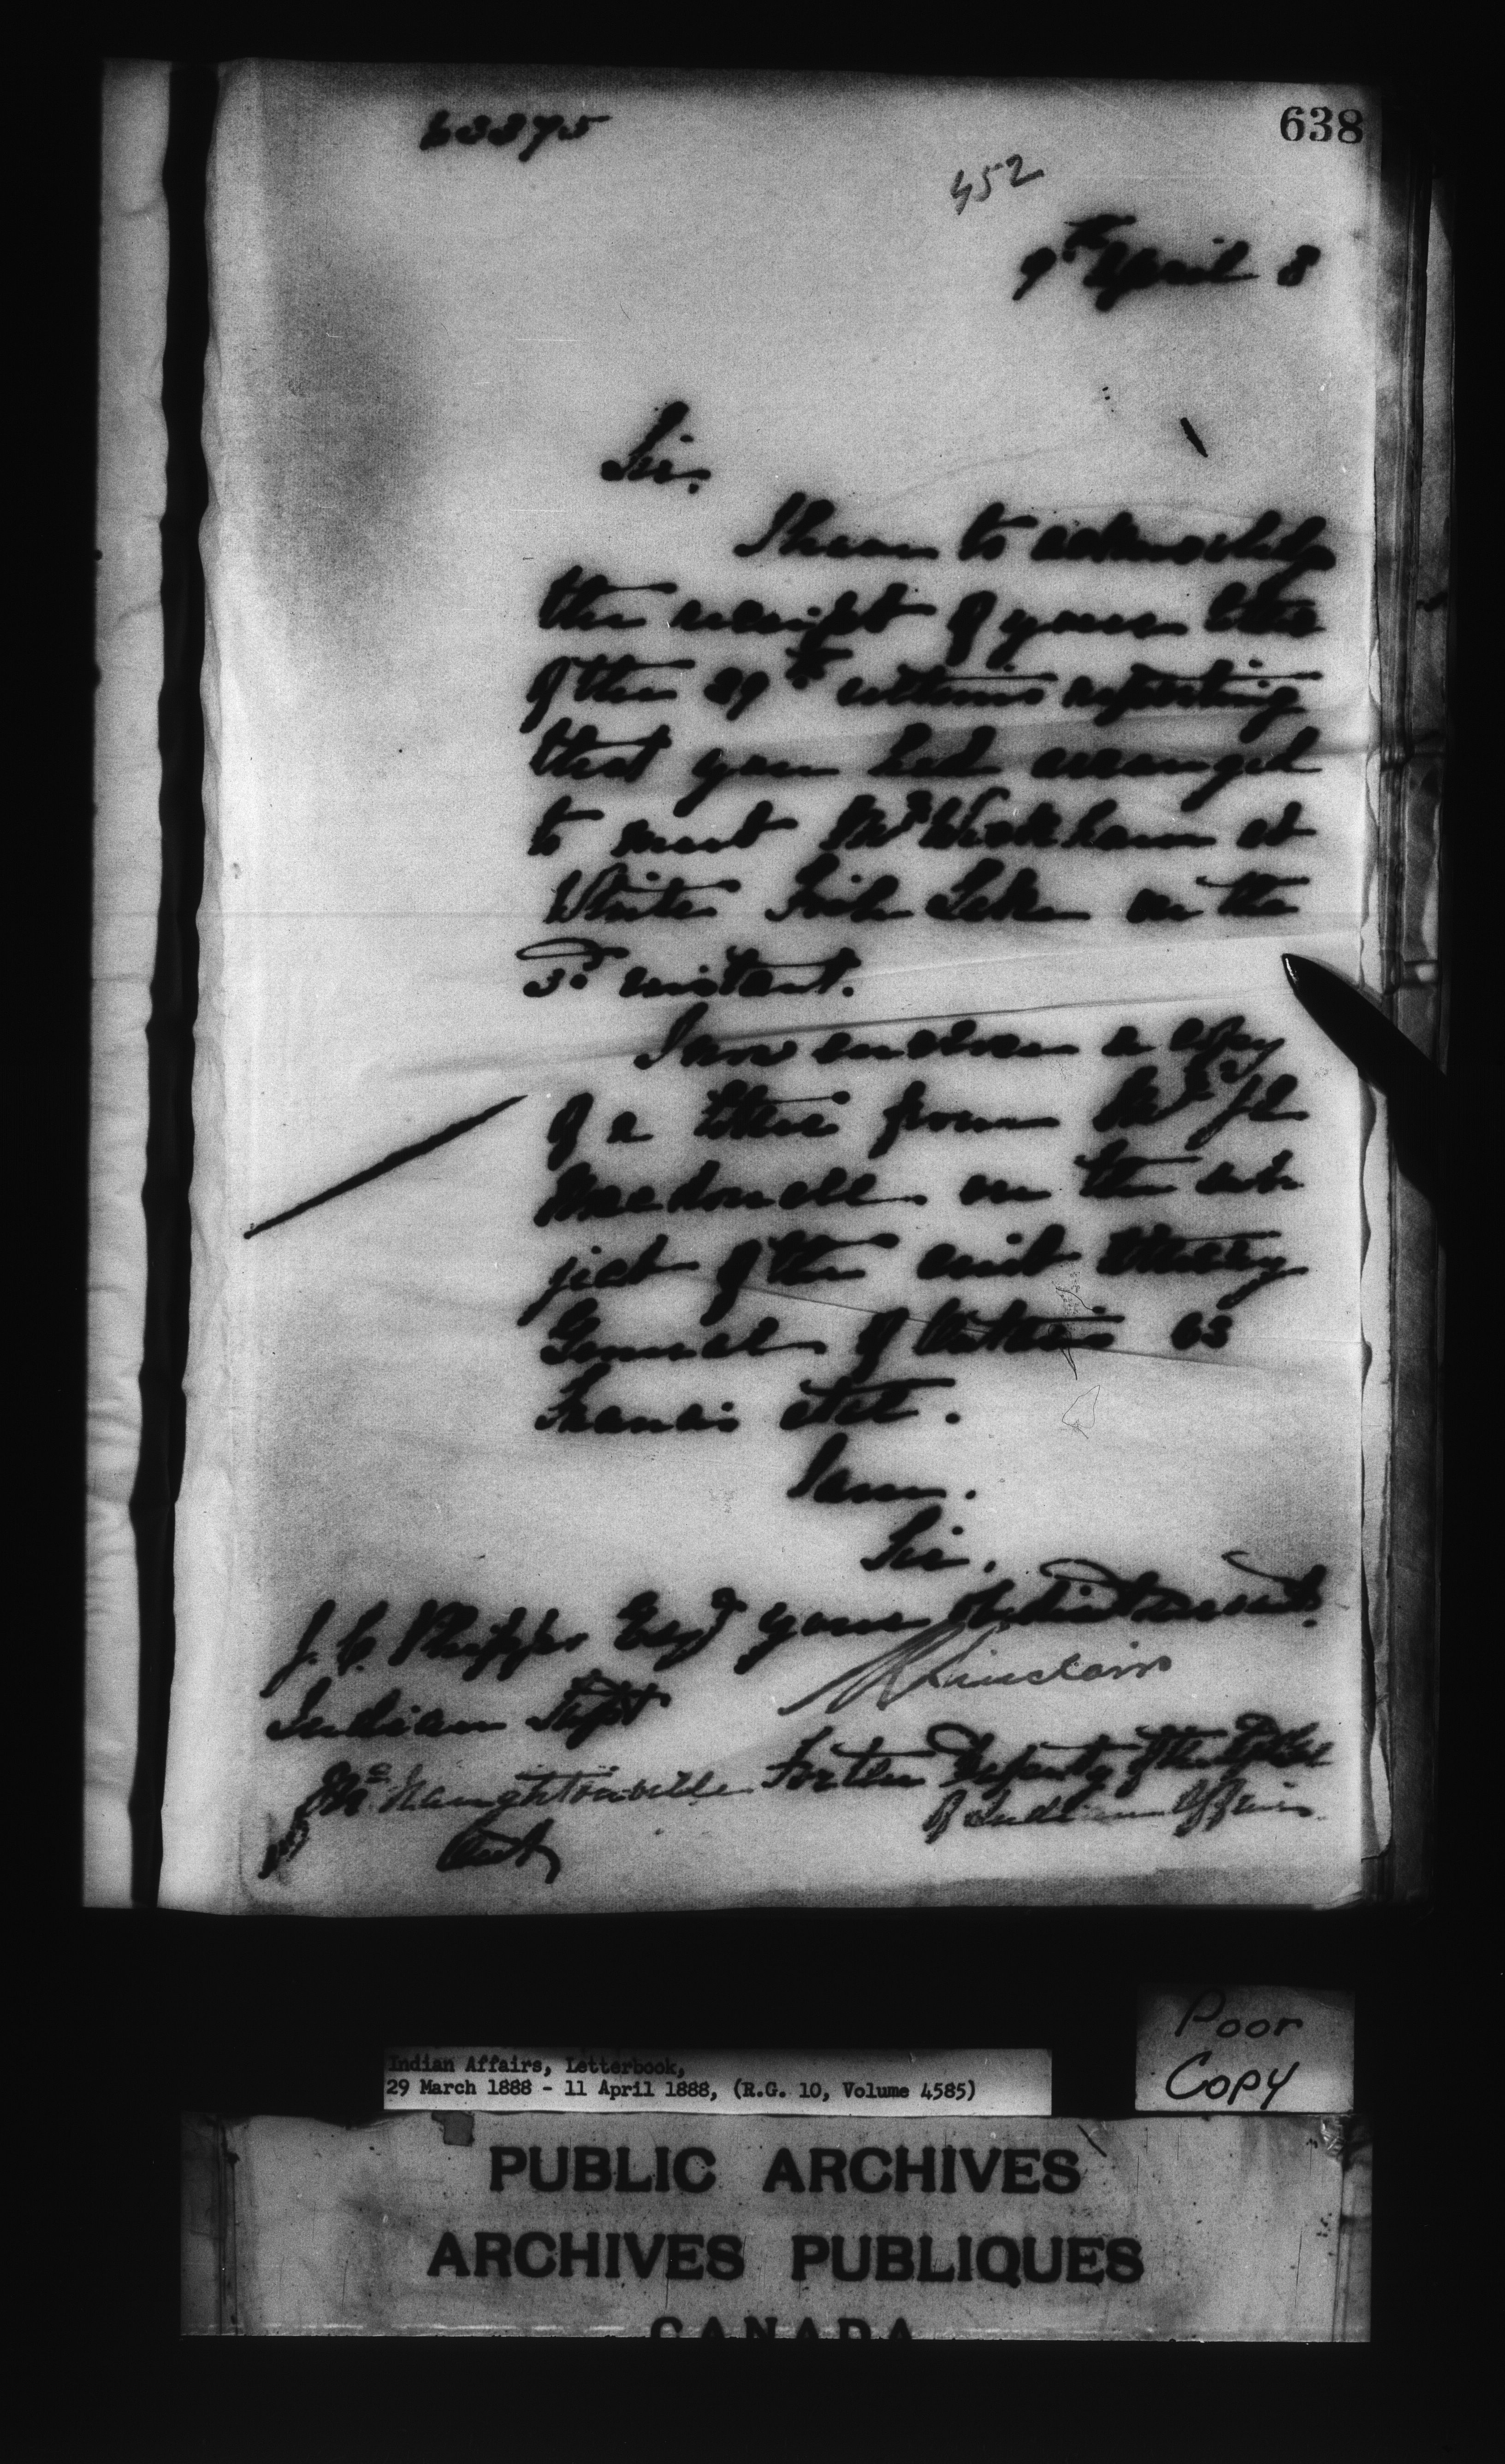 638
63375
452
9th April 8
Sir.
I have to acknowledge
the receipt of your letter
of the 29th ultimo reporting
that you had arranged
to meet Mr Wickham at
White Fish Lake on the
3d instant.
I now enclose a copy
of a letter from Mr
Macdonell on the sub
ject of the suit Attorney
General of Ontario vs
Francis etal.
I am.
Sir.
your obedient servant.
R Sinclair
For the Deputy of the Supt Genl
of Indian Affairs.
J. C. Phipps Esqr
Indian Supt
Manitowaning
Ont
Poor
Copy
Indian Affairs, Letterbook,
29 March 1888 - 11 April 1888, (R.G. 10, Volume 4585)
PUBLIC ARCHIVES
ARCHIVES PUBLIQUES
CANADA